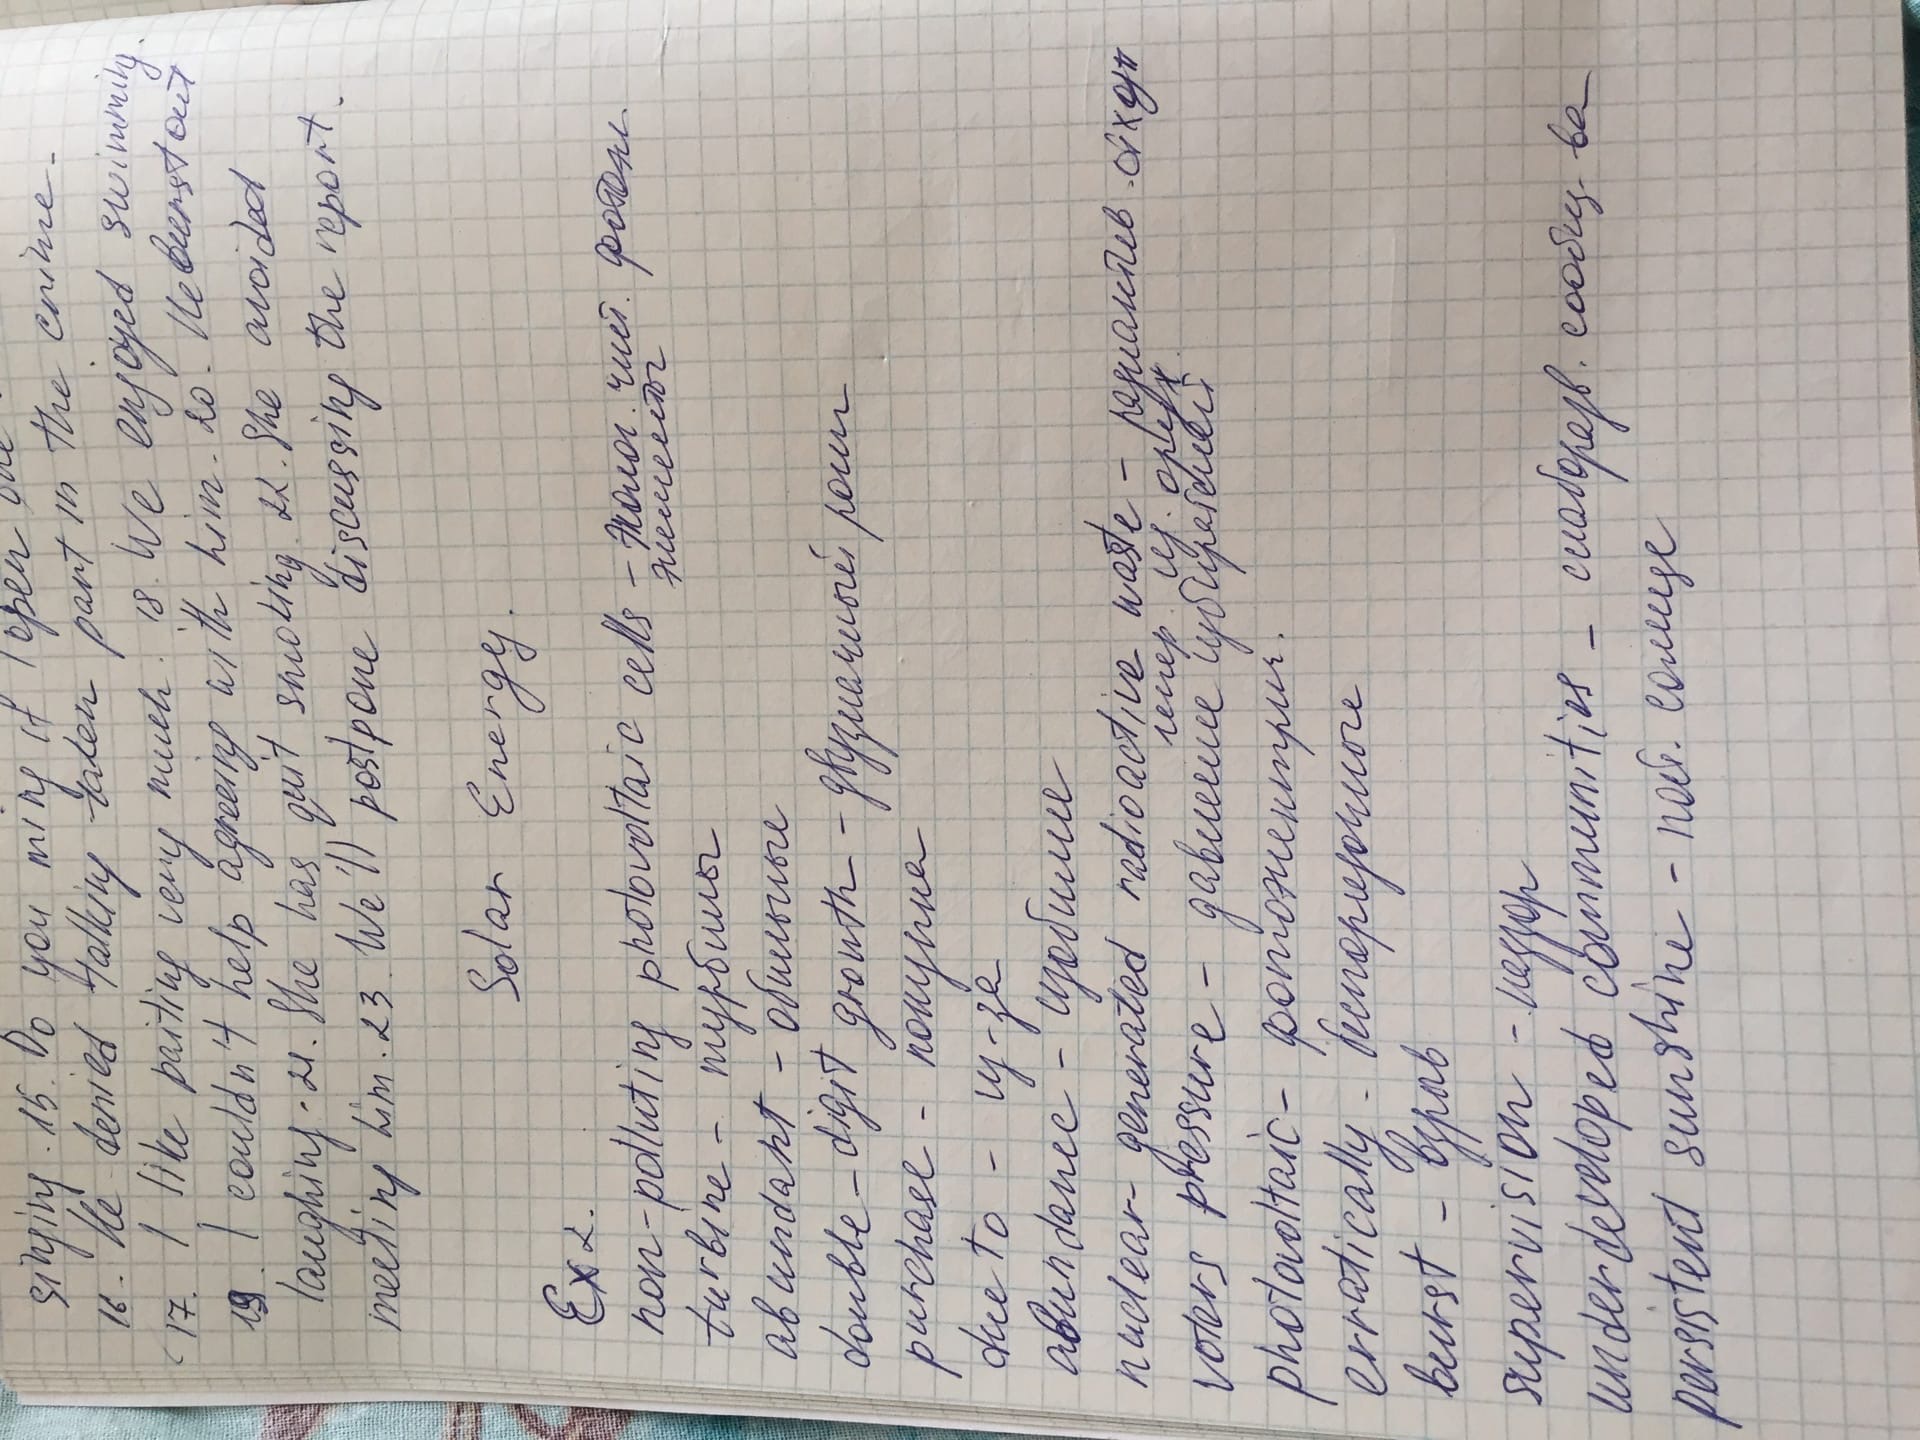 singing. 15. Do you ming if I open the
16. He denied talking taken part in the crime.
17. I like paiting very much. 18. We enjoyed swimming.
19. I couldn't help agreeing with him. 20. He burst out
laughing. 21. She has quit smoking. 22. She avoided
meeting him. 23 We'll postpone discussing the report.
Solar Energy.
Ex 2.
non-polluting photovoltaic cells - эколог. чист. фотоэл
элементы
turbine - турбины
abundant - обильные
double-digit growth - двузначный рост
purchase - покупка
due to - из-за
abundance - изобилие
nuclear-generated radioactive waste - радиактив. отходы
voters pressure - давление избирателей
photovoltaic - фотоэлектрич.
erratically - беспорядочное
burst - взрыв
supervision - надзор
underdeveloped communities - слаборазв. сообщ-ва
persistent sunshine - солнце